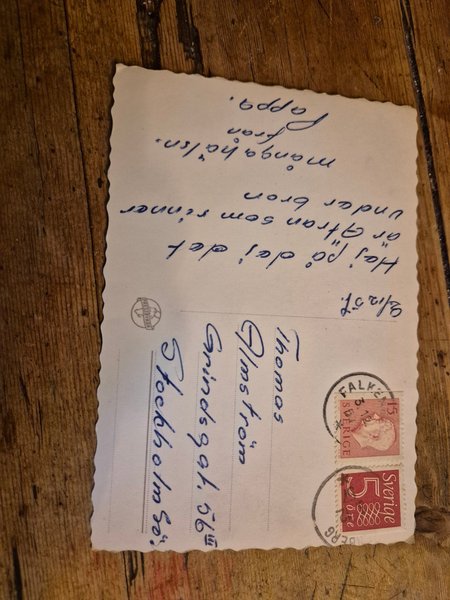 Hej på dej det
är Ätran som rinner
under bron
många hälsn.
från
Pappa.
Thomas
Almström
Grindsgat. 56 III
Stockholm Sö.
FALKE
15
SVERIGE
Sverige
5
ÖRE
BERG